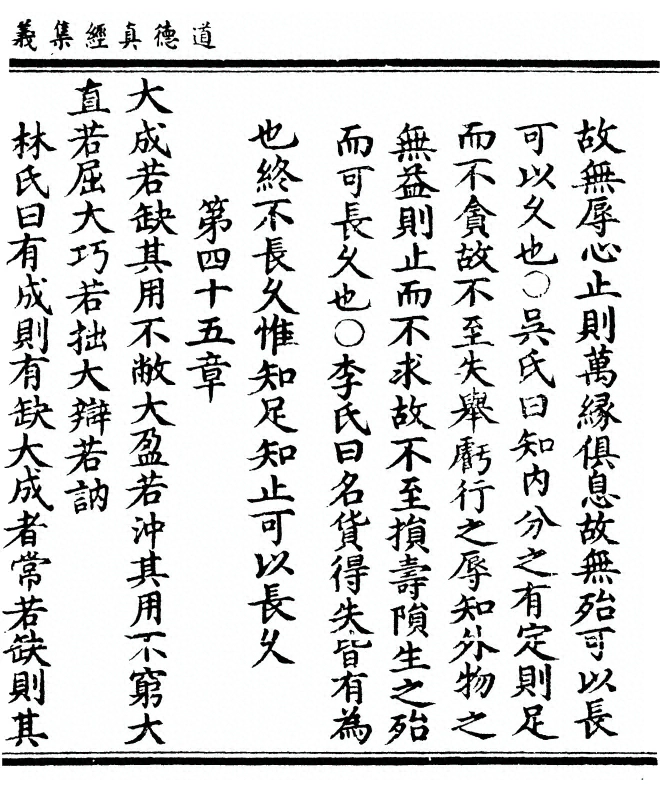 道德真經集義
故無辱心止則萬緣俱息故無殆可以長
可以久也○吳氏曰知內分之有定則足
而不貪故不至失舉虧行之辱知外物之
無益則止而不求故不至損壽隕生之殆
而可長久也○李氏曰名貨得失皆有為
也終不長久惟知足知止可以長久
第四十五章
大成若缺其用不敝大盈若沖其用不窮大
直若屈大巧若拙大辯若訥
林氏曰有成則有缺大成者常若缺則其